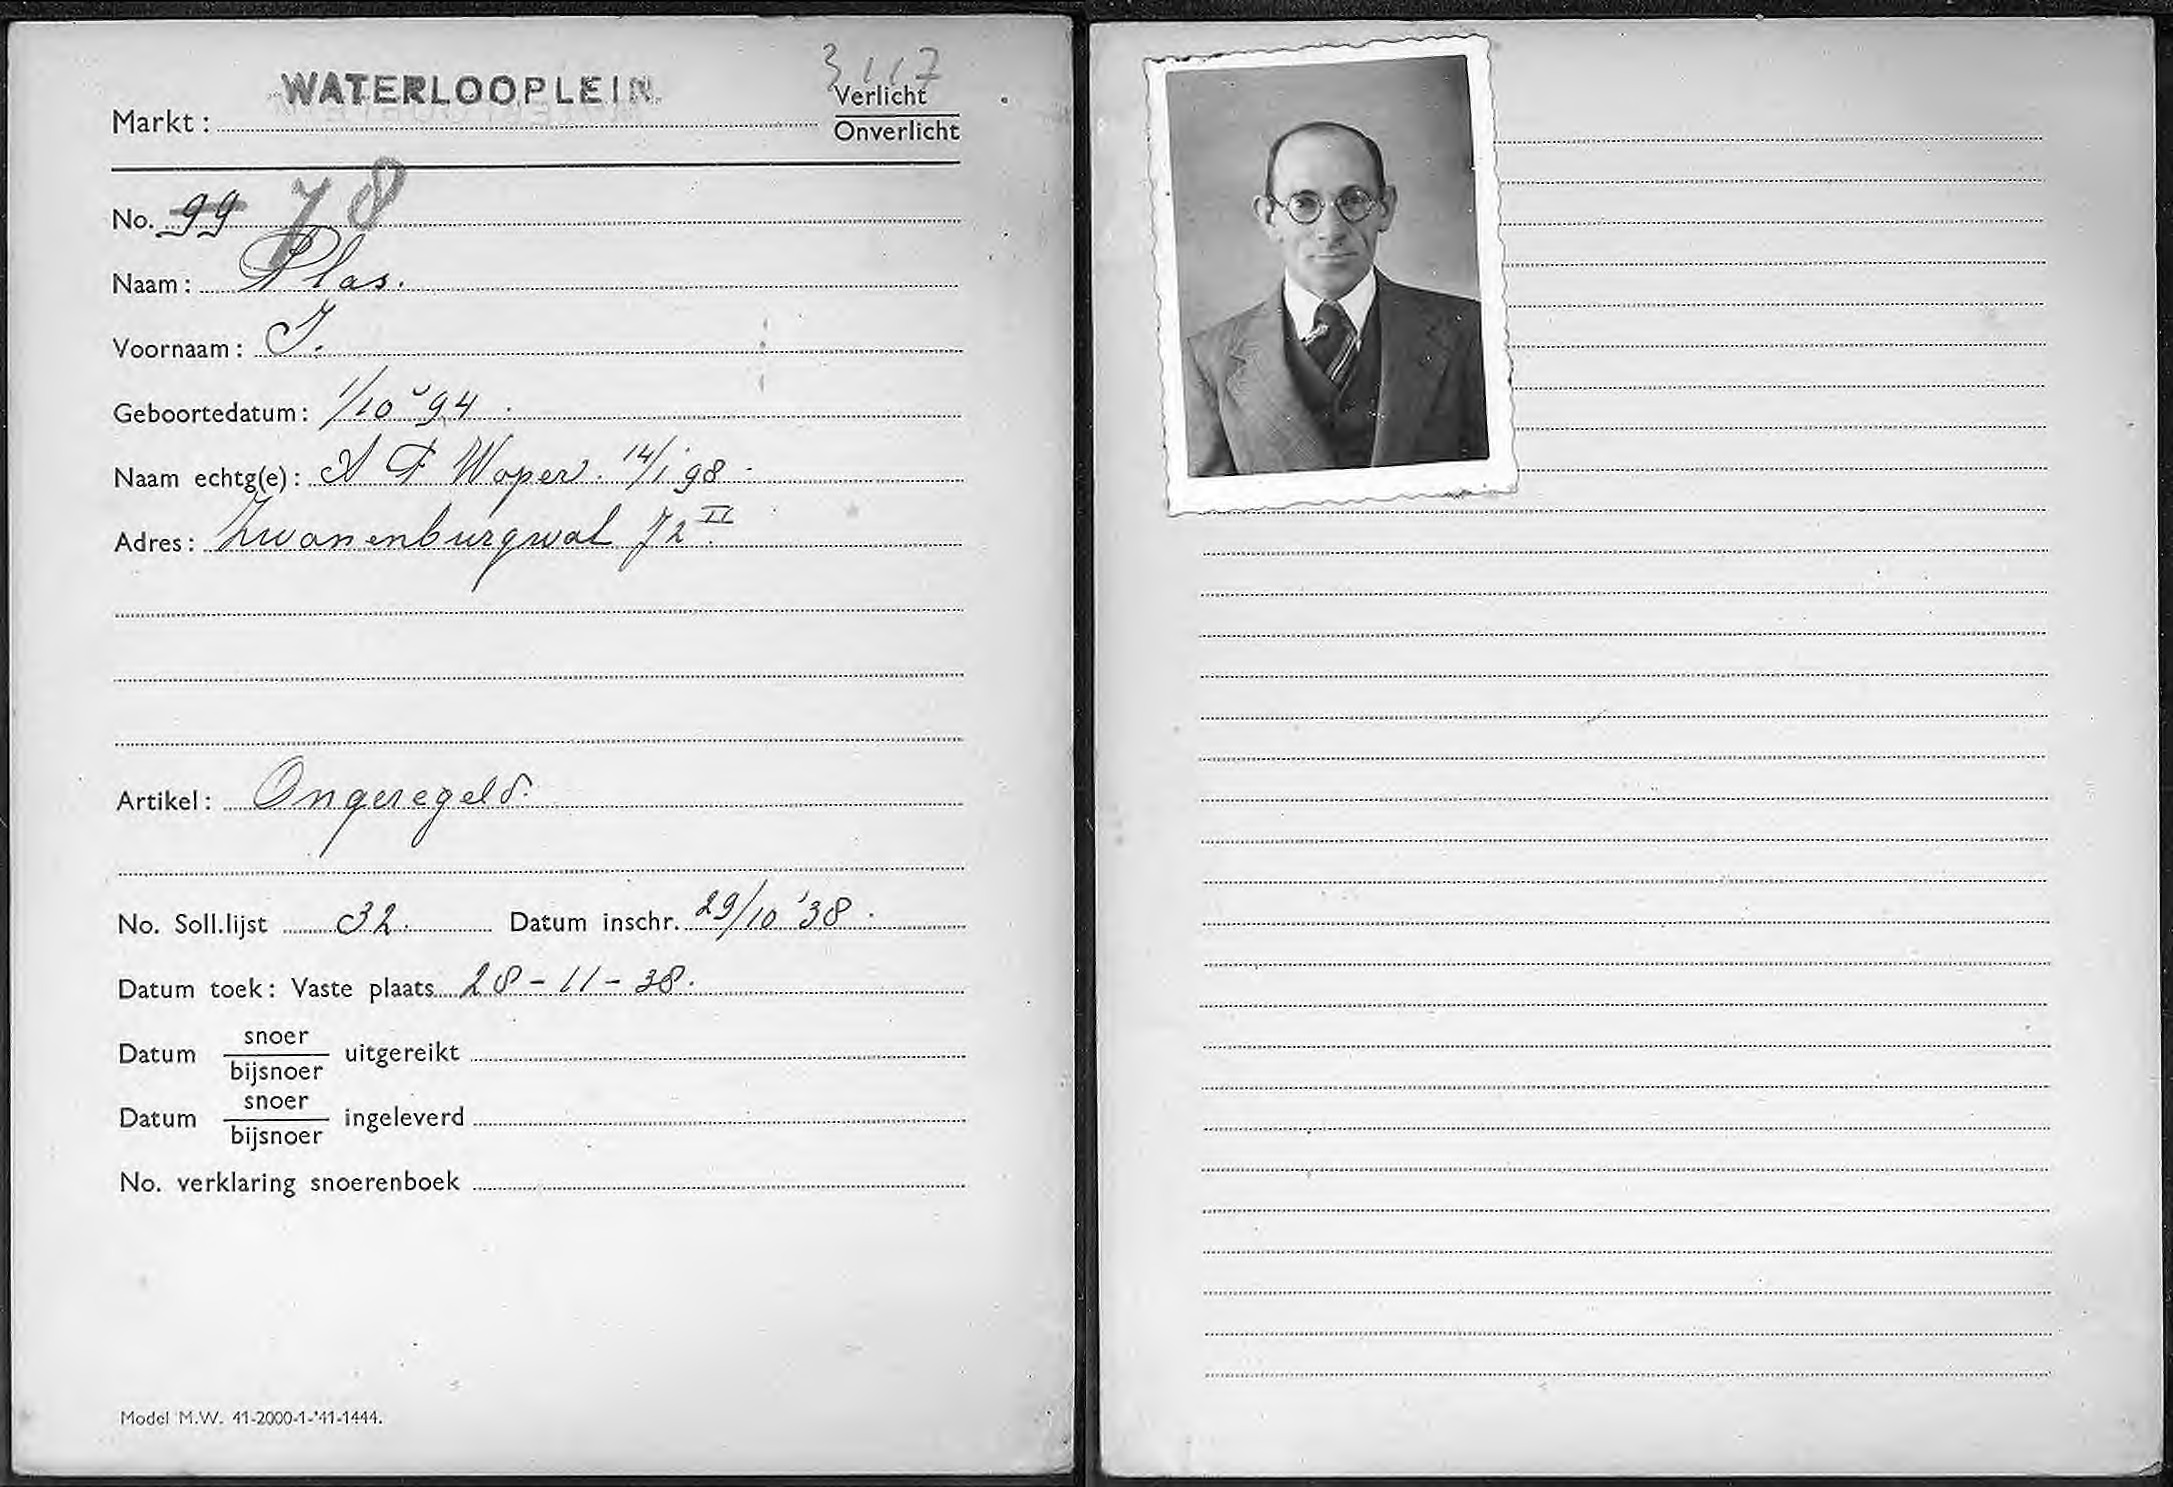 WATERLOOPLEIN
3117
Markt: Verlicht
Onverlicht
No. 99 78
Naam: Plas.
Voornaam: J.
Geboortedatum: 1/10 '94
Naam echtg(e): A F Woper. 14/1 98
Adres: Zwanenburgwal 72 II
Artikel: Ongeregeld.
No. Soll.lijst 32. Datum inschr. 29/10 '38
Datum toek: Vaste plaats 28-11-38.
Datum snoer
bijsnoer uitgereikt
Datum snoer
bijsnoer ingeleverd
No. verklaring snoerenboek
Model M.W. 41-2000-1-'41-1444.